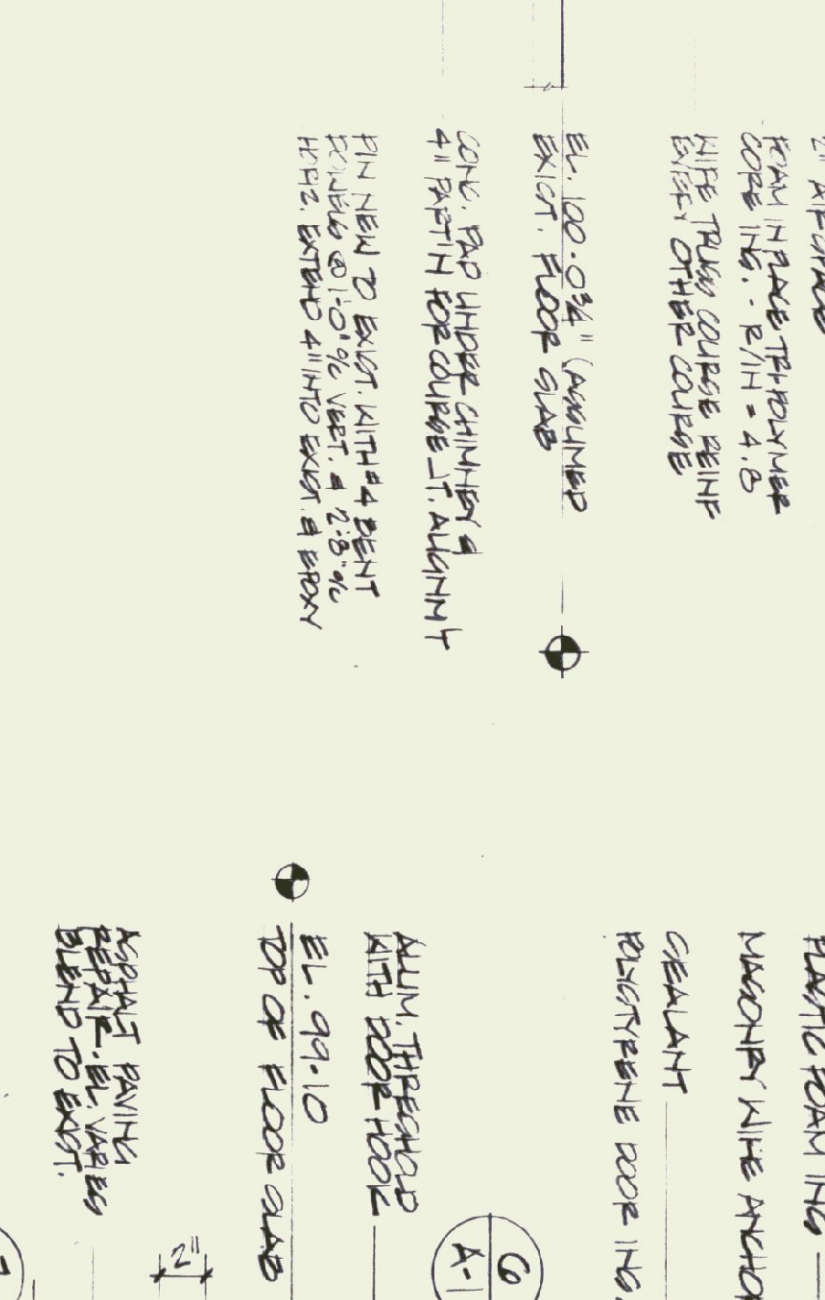 2" AIRSPACE
FOAM IN PLACE TRIPOLYMER
CORE INS. - R/IN = 4.8
WIRE TRUSS COURSE REINF
EVERY OTHER COURSE
EL. 100.0¾" (ASSUMED
EXIST. FLOOR SLAB
CONC. PAD UNDER CHIMNEY &
4" PART'N FOR COURSE JT. ALIGNM'T
PIN NEW TO EXIST. WITH #4 BENT
DOWELS @ 1'-0" % VERT. & 2'.8" %
HORIZ. EXTEND 4" INTO EXIST. & EPOXY
PLASTIC FOAM INS
MASONRY WIRE ANCHO
SEALANT
POLYSTYRENE DOOR INS.
6
A-1
ALUM. THRESHOLD
WITH DOOR HOOK
EL. 99.10
TOP OF FLOOR SLAB
2"
ASPHALT PAVING
REPAIR. EL. VARIES
BLEND TO EXIST.